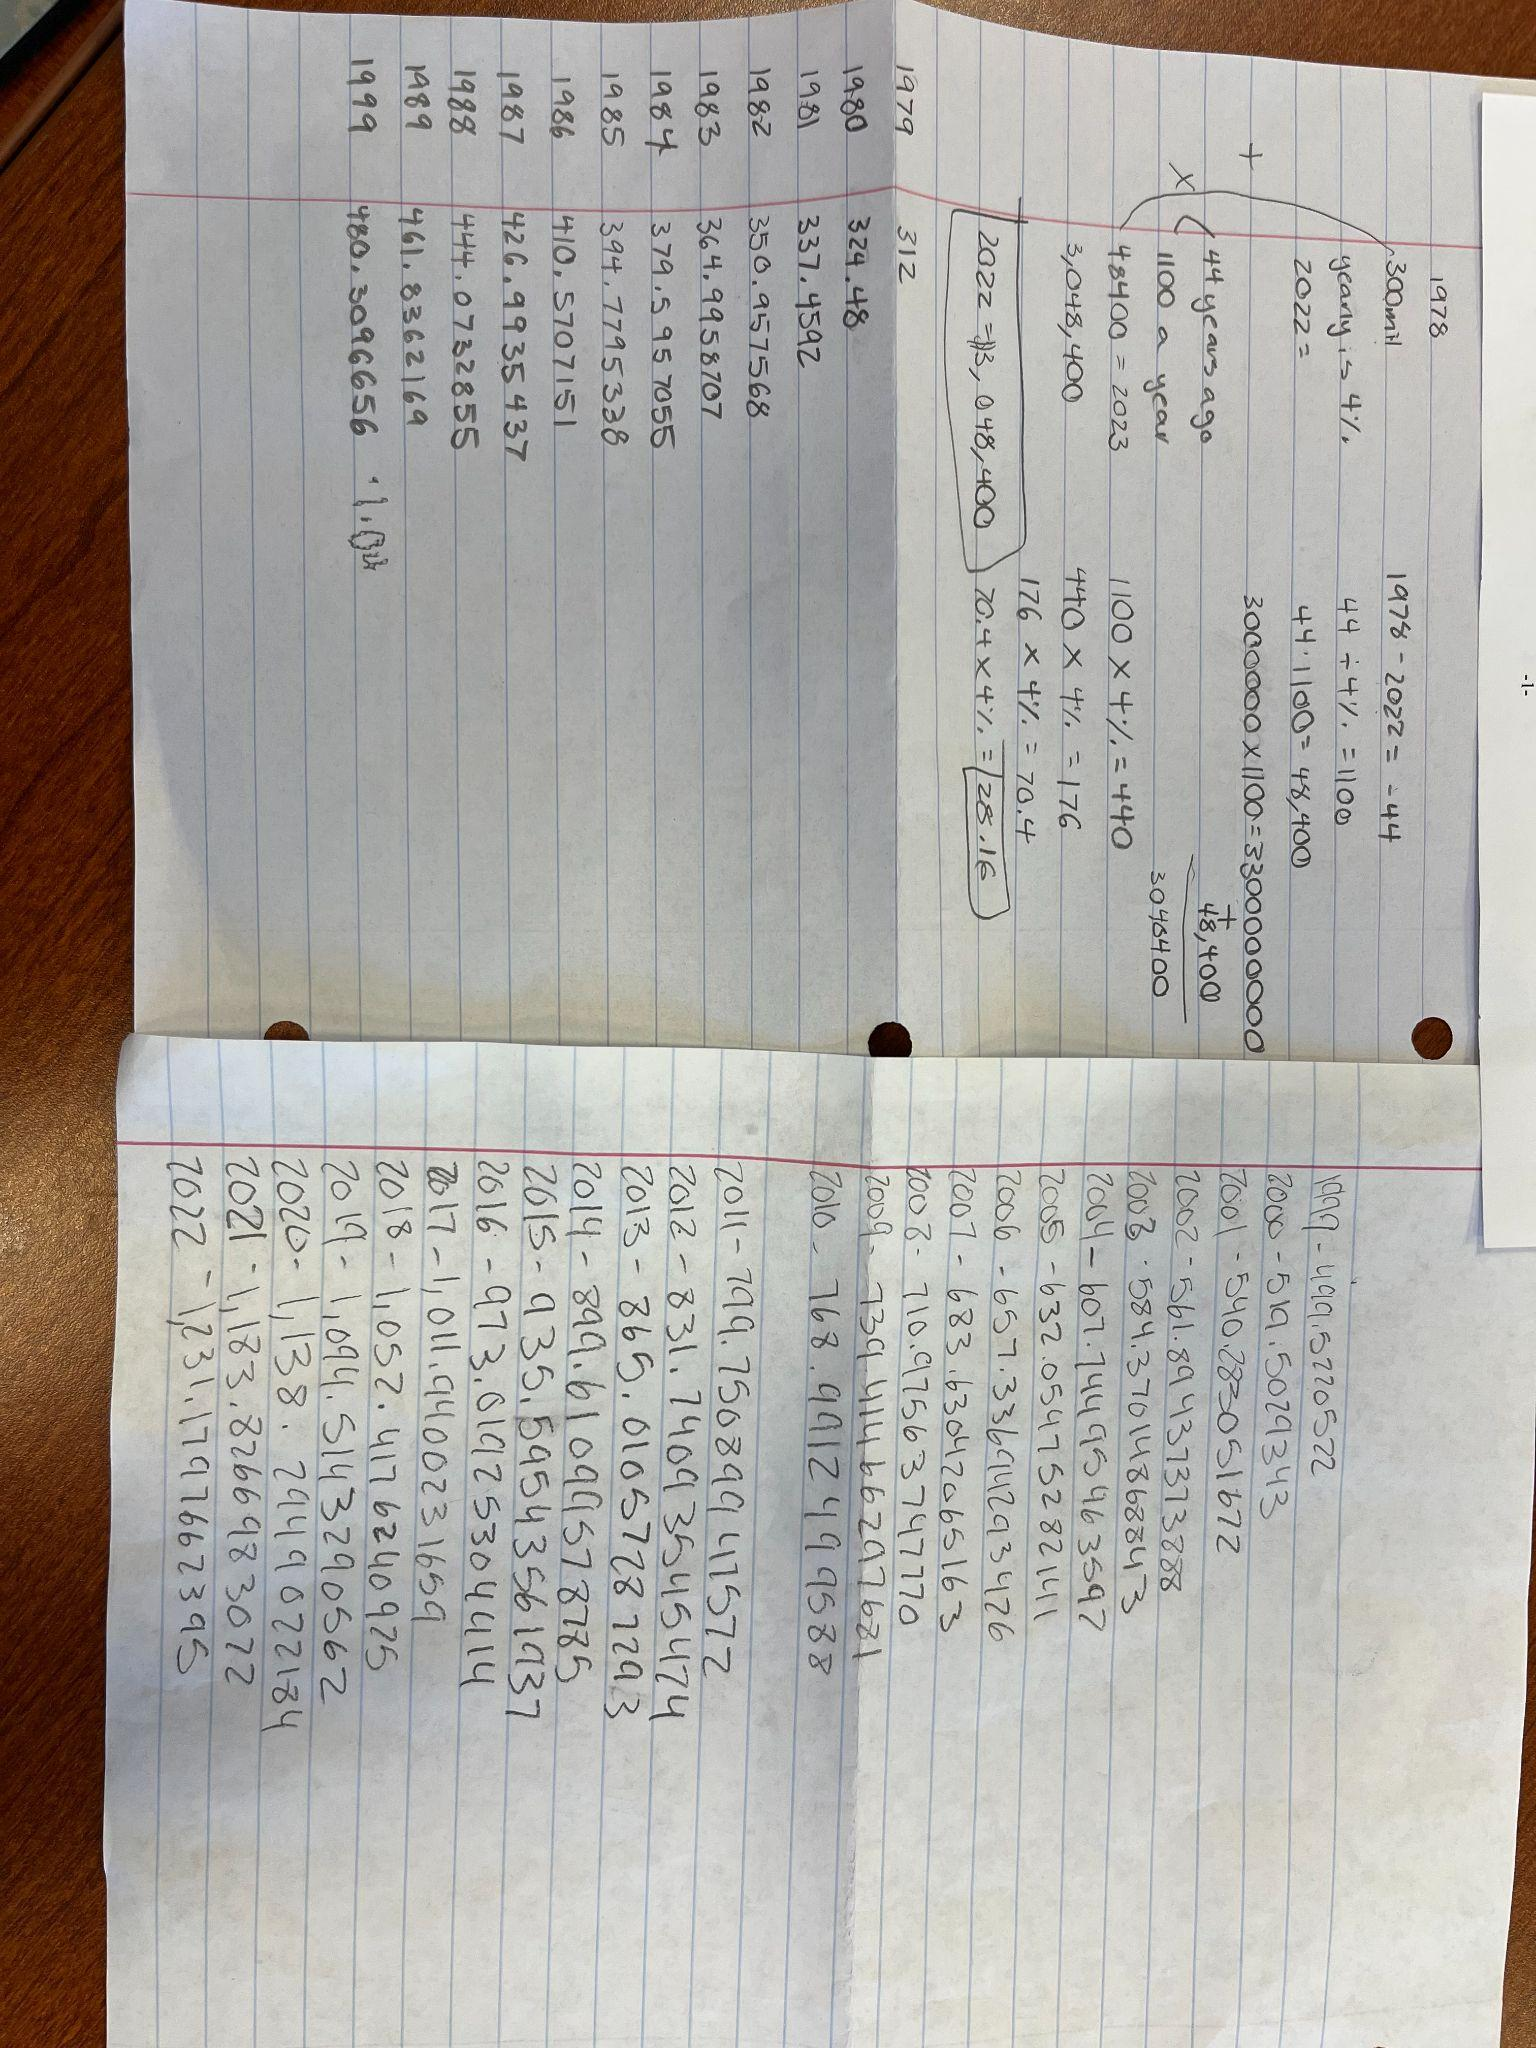 -1-
1978
300mil
yearly is 4%
2022 =
+
44 years ago
x
1100 a year
48400 = 2023
3,048,400
2022 = $3,048,400
1978 - 2022 = -44
44 ÷ 4% = 1100
44 · 1100 = 48,400
3000000 x 1100 = 3300000000
+
48,400
3048400
1100 x 4% = 440
440 x 4% = 176
176 x 4% = 70.4
70.4 x 4% = 28.16
1979 312
1980 324.48
1981 337.4592
1982 350.957568
1983 364.9958707
1984 379.5957055
1985 394.7795338
1986 410.5707151
1987 426.9935437
1988 444.0732855
1989 461.8362169
1999 480.3096656 · 1.04
1999 - 499.5220522
2000 - 519.5029343
2001 - 540.283051672
2002 - 561.89437373888
2003 - 584.370148688473
2004 - 607.74495463597
2005 - 632.05475282141
2006 - 657.33694293426
2007 - 683.63042065163
2008 - 710.97563747770
2009 - 739.41466297681
2010 - 768.99124949588
2011 - 799.75089947572
2012 - 831.74093545474
2013 - 865.01057287293
2014 - 899.61099578785
2015 - 935.59543561937
2016 - 973.01925304414
2017 - 1,011.9400231659
2018 - 1,052.4176240925
2019 - 1,094.5143290562
2020 - 1,138.2949072184
2021 - 1,183.8266983072
2022 - 1,231.1797662395